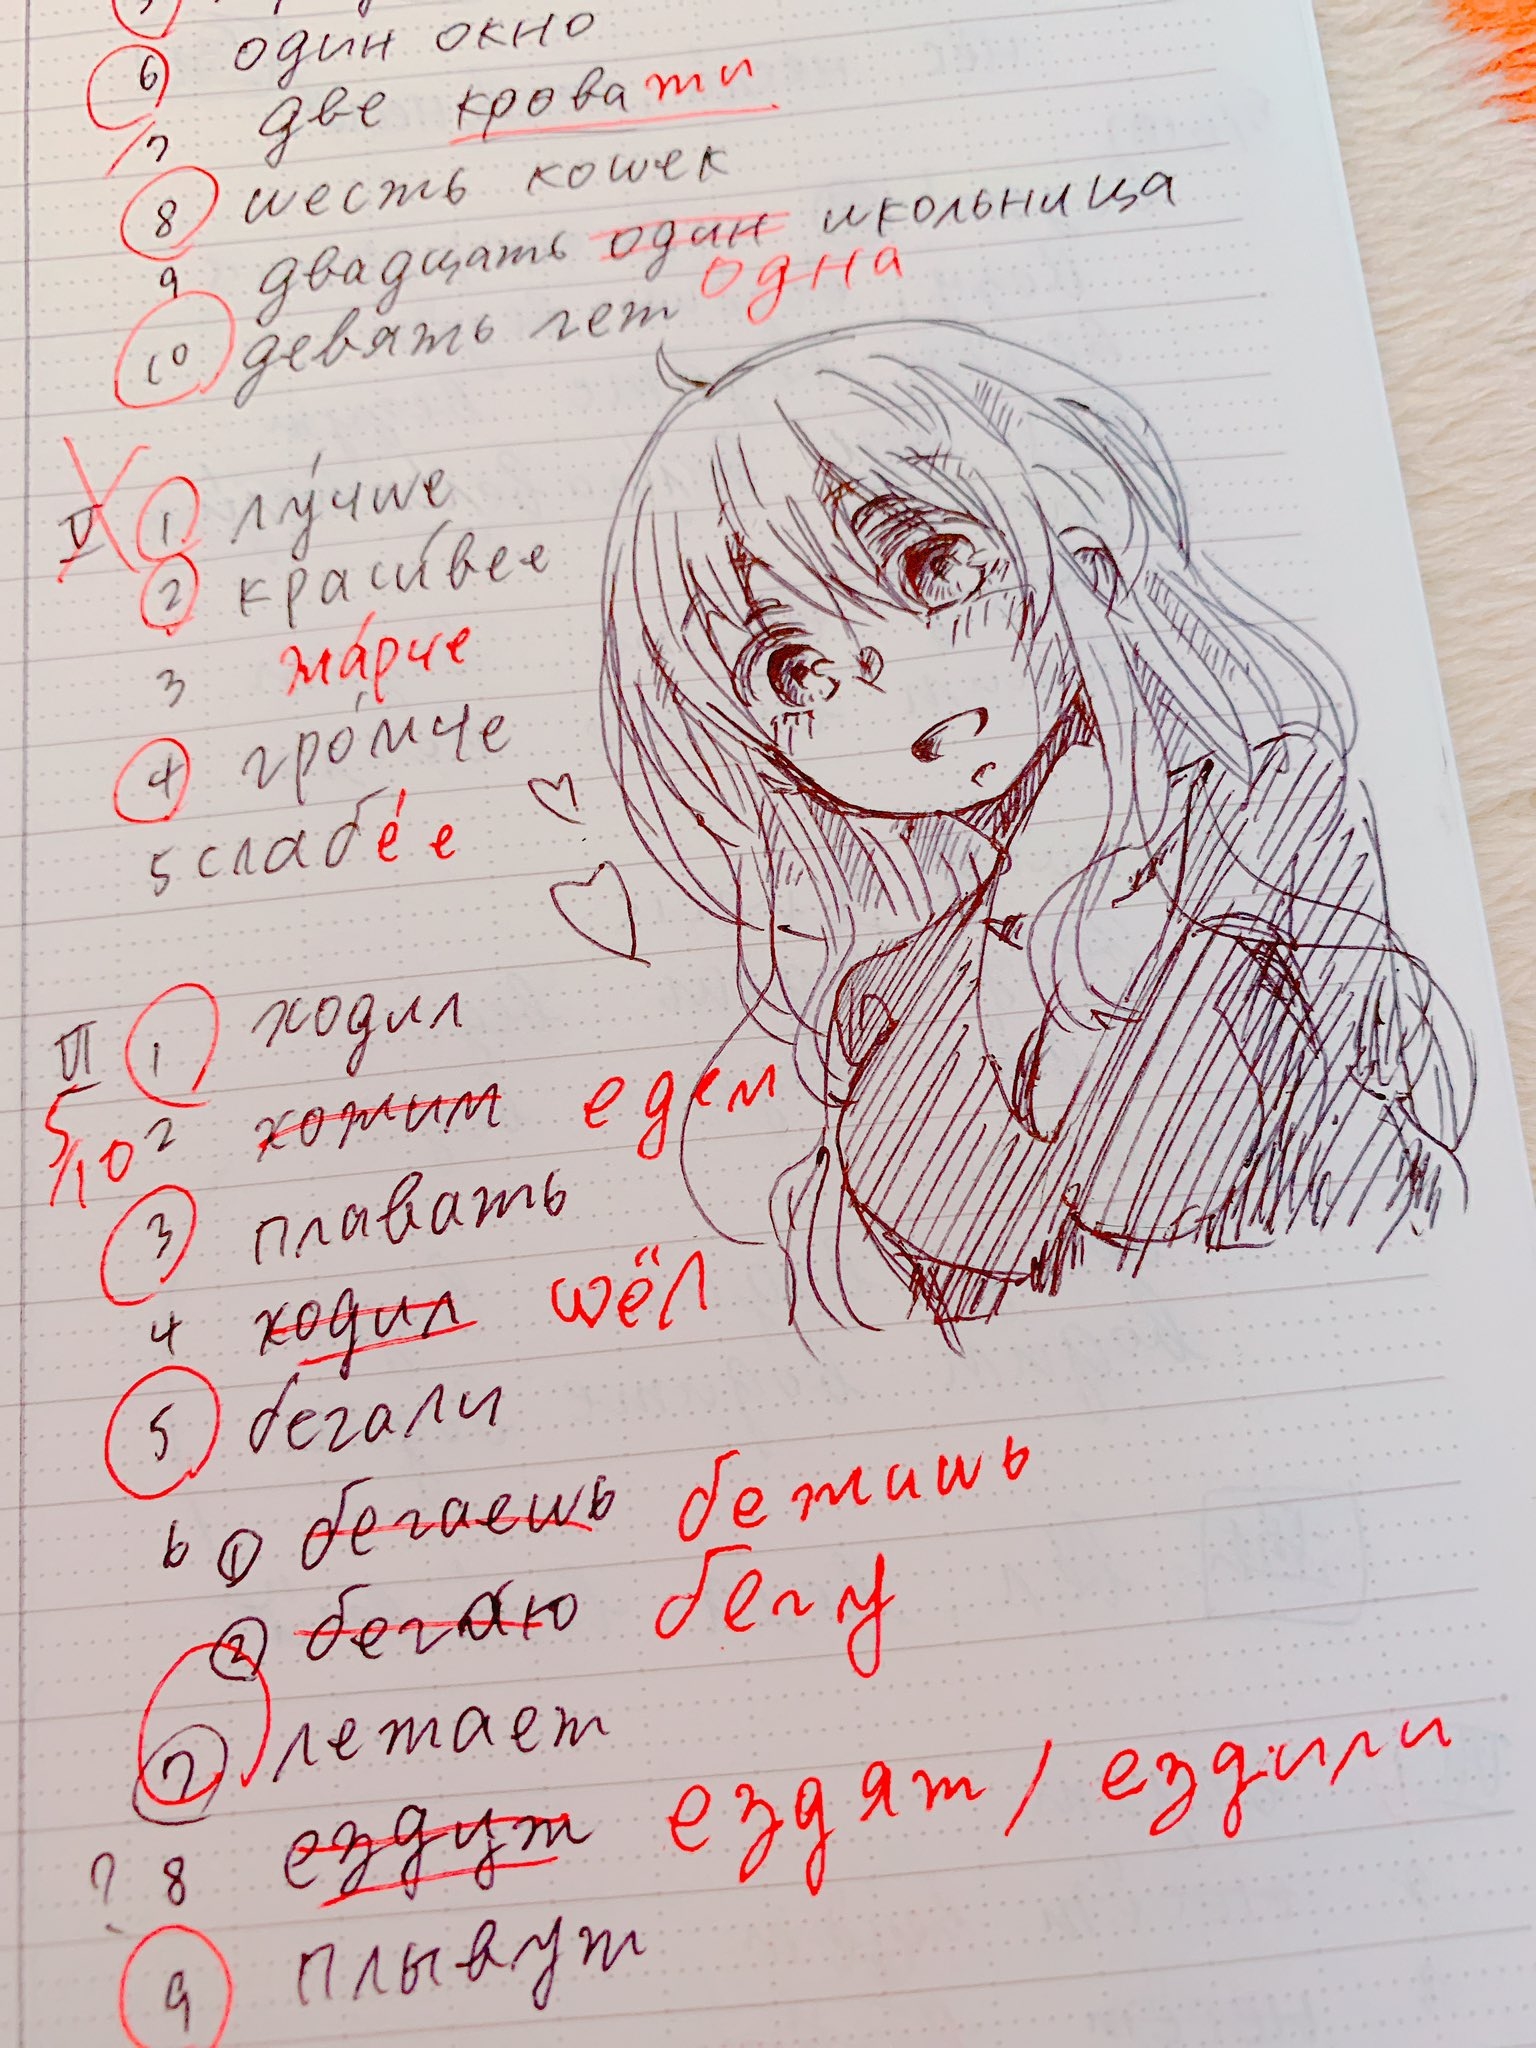 6 один окно
7 две кровати
8 шесть кошек
9 двадцать один школьница
одна
10 девять лет
V 1 лу́чше
2 краси́вее
3 жа́рче
4 гро́мче
5 слабе́е
VI 1 ходил
5/10 2 хожим едем
3 плавать
4 ходил шёл
5 бегали
6 ① бегаешь бежишь
② бегаю бегу
7 летает
? 8 ездут ездят / ездили
9 плывут